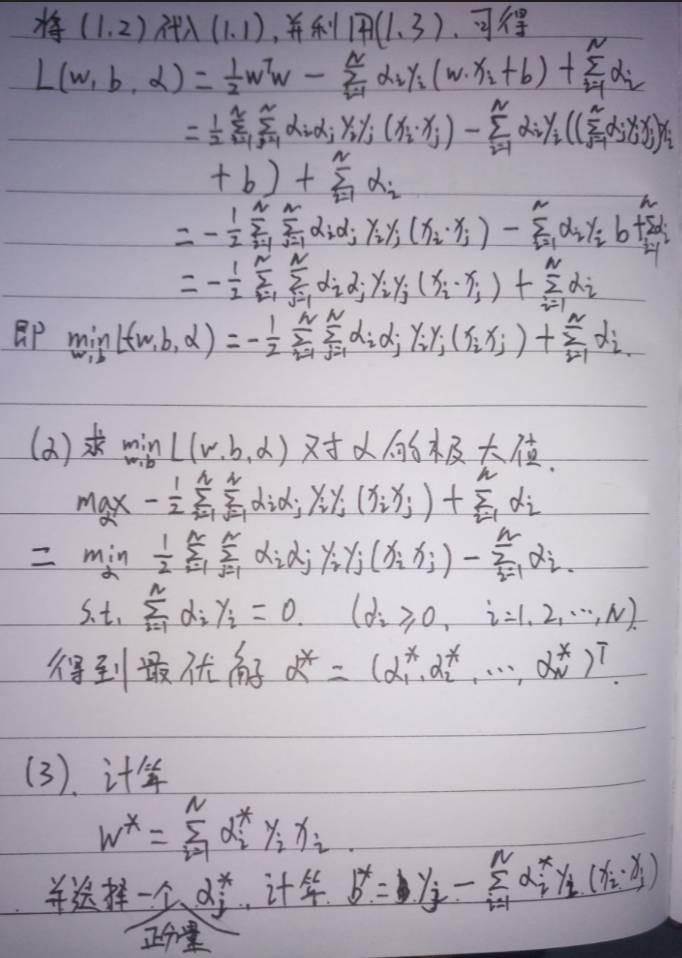 将(1.2)代入(1.1),并利用(1.3).可得
L(w,b,α) = ½wᵀw − ∑_{i=1}^{N} αᵢyᵢ(w·xᵢ+b) + ∑_{i=1}^{N} αᵢ
= ½ ∑_{i=1}^{N} ∑_{j=1}^{N} αᵢαⱼyᵢyⱼ(xᵢ·xⱼ) − ∑_{i=1}^{N} αᵢyᵢ((∑_{j=1}^{N} αⱼyⱼxⱼ)xᵢ
+ b) + ∑_{i=1}^{N} αᵢ
= −½ ∑_{i=1}^{N} ∑_{j=1}^{N} αᵢαⱼyᵢyⱼ(xᵢ·xⱼ) − ∑_{i=1}^{N} αᵢyᵢ b + ∑_{i=1}^{N} αᵢ
= −½ ∑_{i=1}^{N} ∑_{j=1}^{N} αᵢαⱼyᵢyⱼ(xᵢ·xⱼ) + ∑_{i=1}^{N} αᵢ
即 min_{w,b} L(w,b,α) = −½ ∑_{i=1}^{N} ∑_{j=1}^{N} αᵢαⱼyᵢyⱼ(xᵢxⱼ) + ∑_{i=1}^{N} αᵢ.
(2)求 min_{w,b} L(w,b,α) 对α的极大值.
max_α −½ ∑_{i=1}^{N} ∑_{j=1}^{N} αᵢαⱼyᵢyⱼ(xᵢxⱼ) + ∑_{i=1}^{N} αᵢ
= min_α ½ ∑_{i=1}^{N} ∑_{j=1}^{N} αᵢαⱼyᵢyⱼ(xᵢxⱼ) − ∑_{i=1}^{N} αᵢ.
s.t. ∑_{i=1}^{N} αᵢyᵢ = 0. (αᵢ ≥ 0, i=1,2,⋯,N).
得到最优解 α* = (α₁*, α₂*, ⋯, α_N*)ᵀ.
(3).计算
w* = ∑_{i=1}^{N} αᵢ* yᵢ xᵢ.
并选择一个 αⱼ*,计算 b* = yⱼ − ∑_{i=1}^{N} αᵢ* yᵢ (xᵢ·xⱼ)
正分量